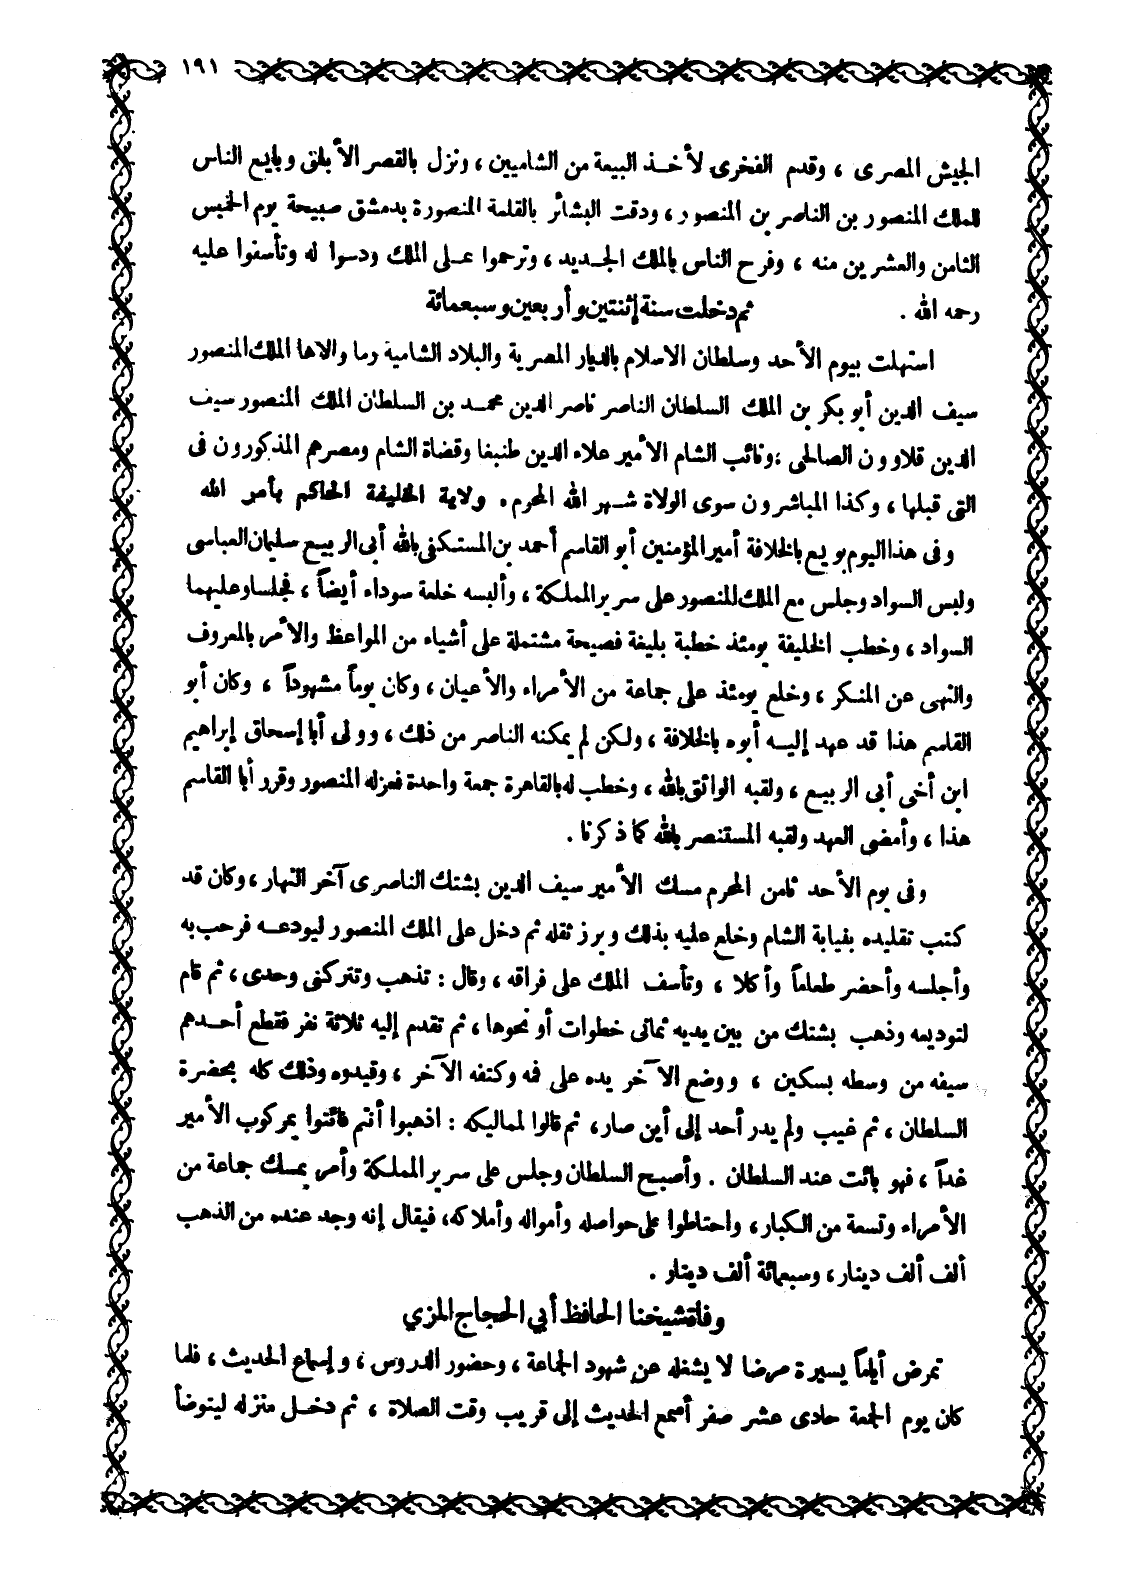 ١٩١
الجيش المصرى ، وقدم الفخرى لأخذ البيعة من الشاميين ، ونزل بالقصر الأبلق وبايع الناس
للملك المنصور بن الناصر بن المنصور ، ودقت البشائر بالقلعة المنصورة بدمشق صبيحة يوم الخميس
الثامن والعشرين منه ، وفرح الناس بالملك الجديد ، وترحموا على الملك ودعوا له وتأسفوا عليه
رحمه الله . ثم دخلت سنة إثنتين وأربعين وسبعمائة
استهلت بيوم الأحد وسلطان الاسلام بالديار المصرية والبلاد الشامية وما والاها الملك المنصور
سيف الدين أبو بكر بن الملك السلطان الناصر ناصر الدين محمد بن السلطان الملك المنصور سيف
الدين قلاوون الصالحى ، ونائب الشام الأمير علاء الدين طنبغا وقضاة الشام ومصر هم المذكورون فى
التى قبلها ، وكذا المباشرون سوى الولاة شهر الله المحرم . ولاية الخليفة الحاكم بأمر الله
وفى هذا اليوم بويع بالخلافة أمير المؤمنين أبو القاسم أحمد بن المستكفى بالله أبى الربيع سليمان العباسى
ولبس السواد وجلس مع الملك المنصور على سرير المملكة ، وألبسه خلعة سوداء أيضاً ، فجلسا وعليهما
السواد ، وخطب الخليفة يومئذ خطبة بليغة فصيحة مشتملة على أشياء من المواعظ والأمر بالمعروف
والنهى عن المنكر ، وخلع يومئذ على جماعة من الأمراء والأعيان ، وكان يوماً مشهوداً ، وكان أبو
القاسم هذا قد عهد إليه أبوه بالخلافة ، ولكن لم يمكنه الناصر من ذلك ، وولى أبا إسحاق إبراهيم
ابن أخى أبى الربيع ، ولقبه الواثق بالله ، وخطب له بالقاهرة جمعة واحدة فعزله المنصور وقرر أبا القاسم
هذا ، وأمضى العهد ولقبه المستنصر بالله كما ذكرنا .
وفى يوم الأحد ثامن المحرم مسك الأمير سيف الدين بشتك الناصرى آخر النهار ، وكان قد
كتب تقليده بنيابة الشام وخلع عليه بذلك وبرز ثقله ثم دخل على الملك المنصور ليودعه فرحب به
وأجلسه وأحضر طعاماً وأكلا ، وتأسف الملك على فراقه ، وقال : تذهب وتتركنى وحدى ، ثم قام
لتوديعه وذهب بشتك من بين يديه ثمانى خطوات أو نحوها ، ثم تقدم إليه ثلاثة نفر فقطع أحدهم
سيفه من وسطه بسكين ، ووضع الآخر يده على فمه وكتفه الآخر ، وقيدوه وذلك كله بحضرة
السلطان ، ثم غيب ولم يدر أحد إلى أين صار ، ثم قالوا لماليكه : اذهبوا أنتم فائتوا بمركوب الأمير
غداً ، فهو بائت عند السلطان . وأصبح السلطان وجلس على سرير المملكة وأمر بمسك جماعة من
الأمراء وتسعة من الكبار ، واحتاطوا على حواصله وأمواله وأملاكه، فيقال إنه وجد عنده من الذهب
ألف ألف دينار ، وسبعمائة ألف دينار .
وفاة شيخنا الحافظ أبي الحجاج المزي
تمرض أياماً يسيرة مرضا لا يشغله عن شهود الجماعة ، وحضور الدروس ، وإسماع الحديث ، فلما
كان يوم الجمعة حادى عشر صفر أسمع الحديث إلى قريب وقت الصلاة ، ثم دخل منزله ليتوضأ